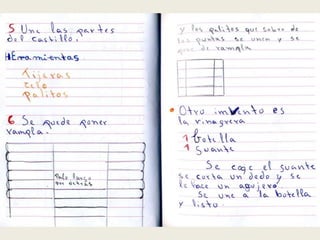 5 Une las partes
del castillo.
Herramientas
Tijeras
Celo
palitos
6 Se puede poner
rampla.
Palo largo
por detrás
y los palitos que sobre de
las puntas se unen y se
pone de rampla
Otro invento es
la vinagrera
1 botella
1 guante
Se coge el guante
se corta un dedo y se
le hace un agujero.
Se une a la botella
y listo